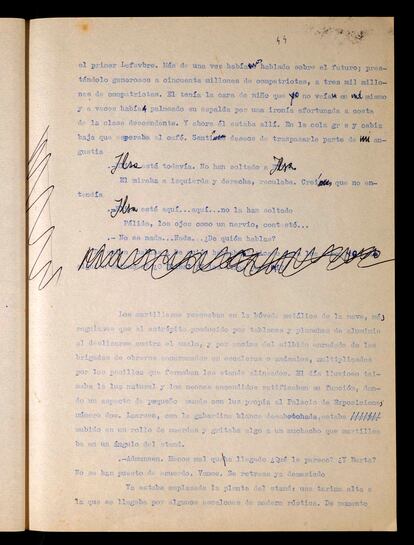 44
el primer Lefevbre. Más de una vez habíamos hablado sobre el futuro; pres-
tándolo generoso a cincuenta millones de compatriotas, a tres mil millo-
nes de compatriotas. El tenía la cara de niño que yo no veía en mí mismo
y a veces había palmeado su espalda por una ironía afortunada a costa
de la clase descendente. Y ahora él estaba allí. En la cola gris y cabiz
baja que esperaba al café. Sentí deseos de traspasarle parte de mi an-
gustia
.- Ilsa está todavía. No han soltado a Ilsa
El miraba a izquierda y derecha, reculaba. Creí que no en-
tendía
.- Ilsa está aquí...aquí...no la han soltado
Pálido, los ojos como un nervio, contestó...
.- No se nada...Nada...¿De quién hablas?
Los martillazos resonaban en la bóveda metálica de la nave, más
rogativos que el estrépito producido por tablones y planchas de aluminio
al deslizarse contra el suelo, y por encima del silbido enredado de las
brigadas de obreros encaramados en escaleras o andamios, multiplicados
por los pasillos que formaban los stands alineados. El día lluvioso ta-
maba la luz natural y los neones encendidos ratificaban su función, dan-
do un aspecto de pequeño mundo con luz propia al Palacio de Exposiciones
número dos. Lacrave, con la gabardina blanca desabotonada, estaba
subido en un rollo de cuerdas y gritaba algo a un muchacho que martillea
ba en un ángulo del stand.
.-Admunsen. Menos mal que ha llegado ¿Qué le parece? ¿Y Berta?
No se han puesto de acuerdo. Vamos. Se retrasa ya demasiado
Ya estaba emplazada la planta del stand: una tarima alta a
la que se llegaba por algunos escalones de madera rústica. De momento